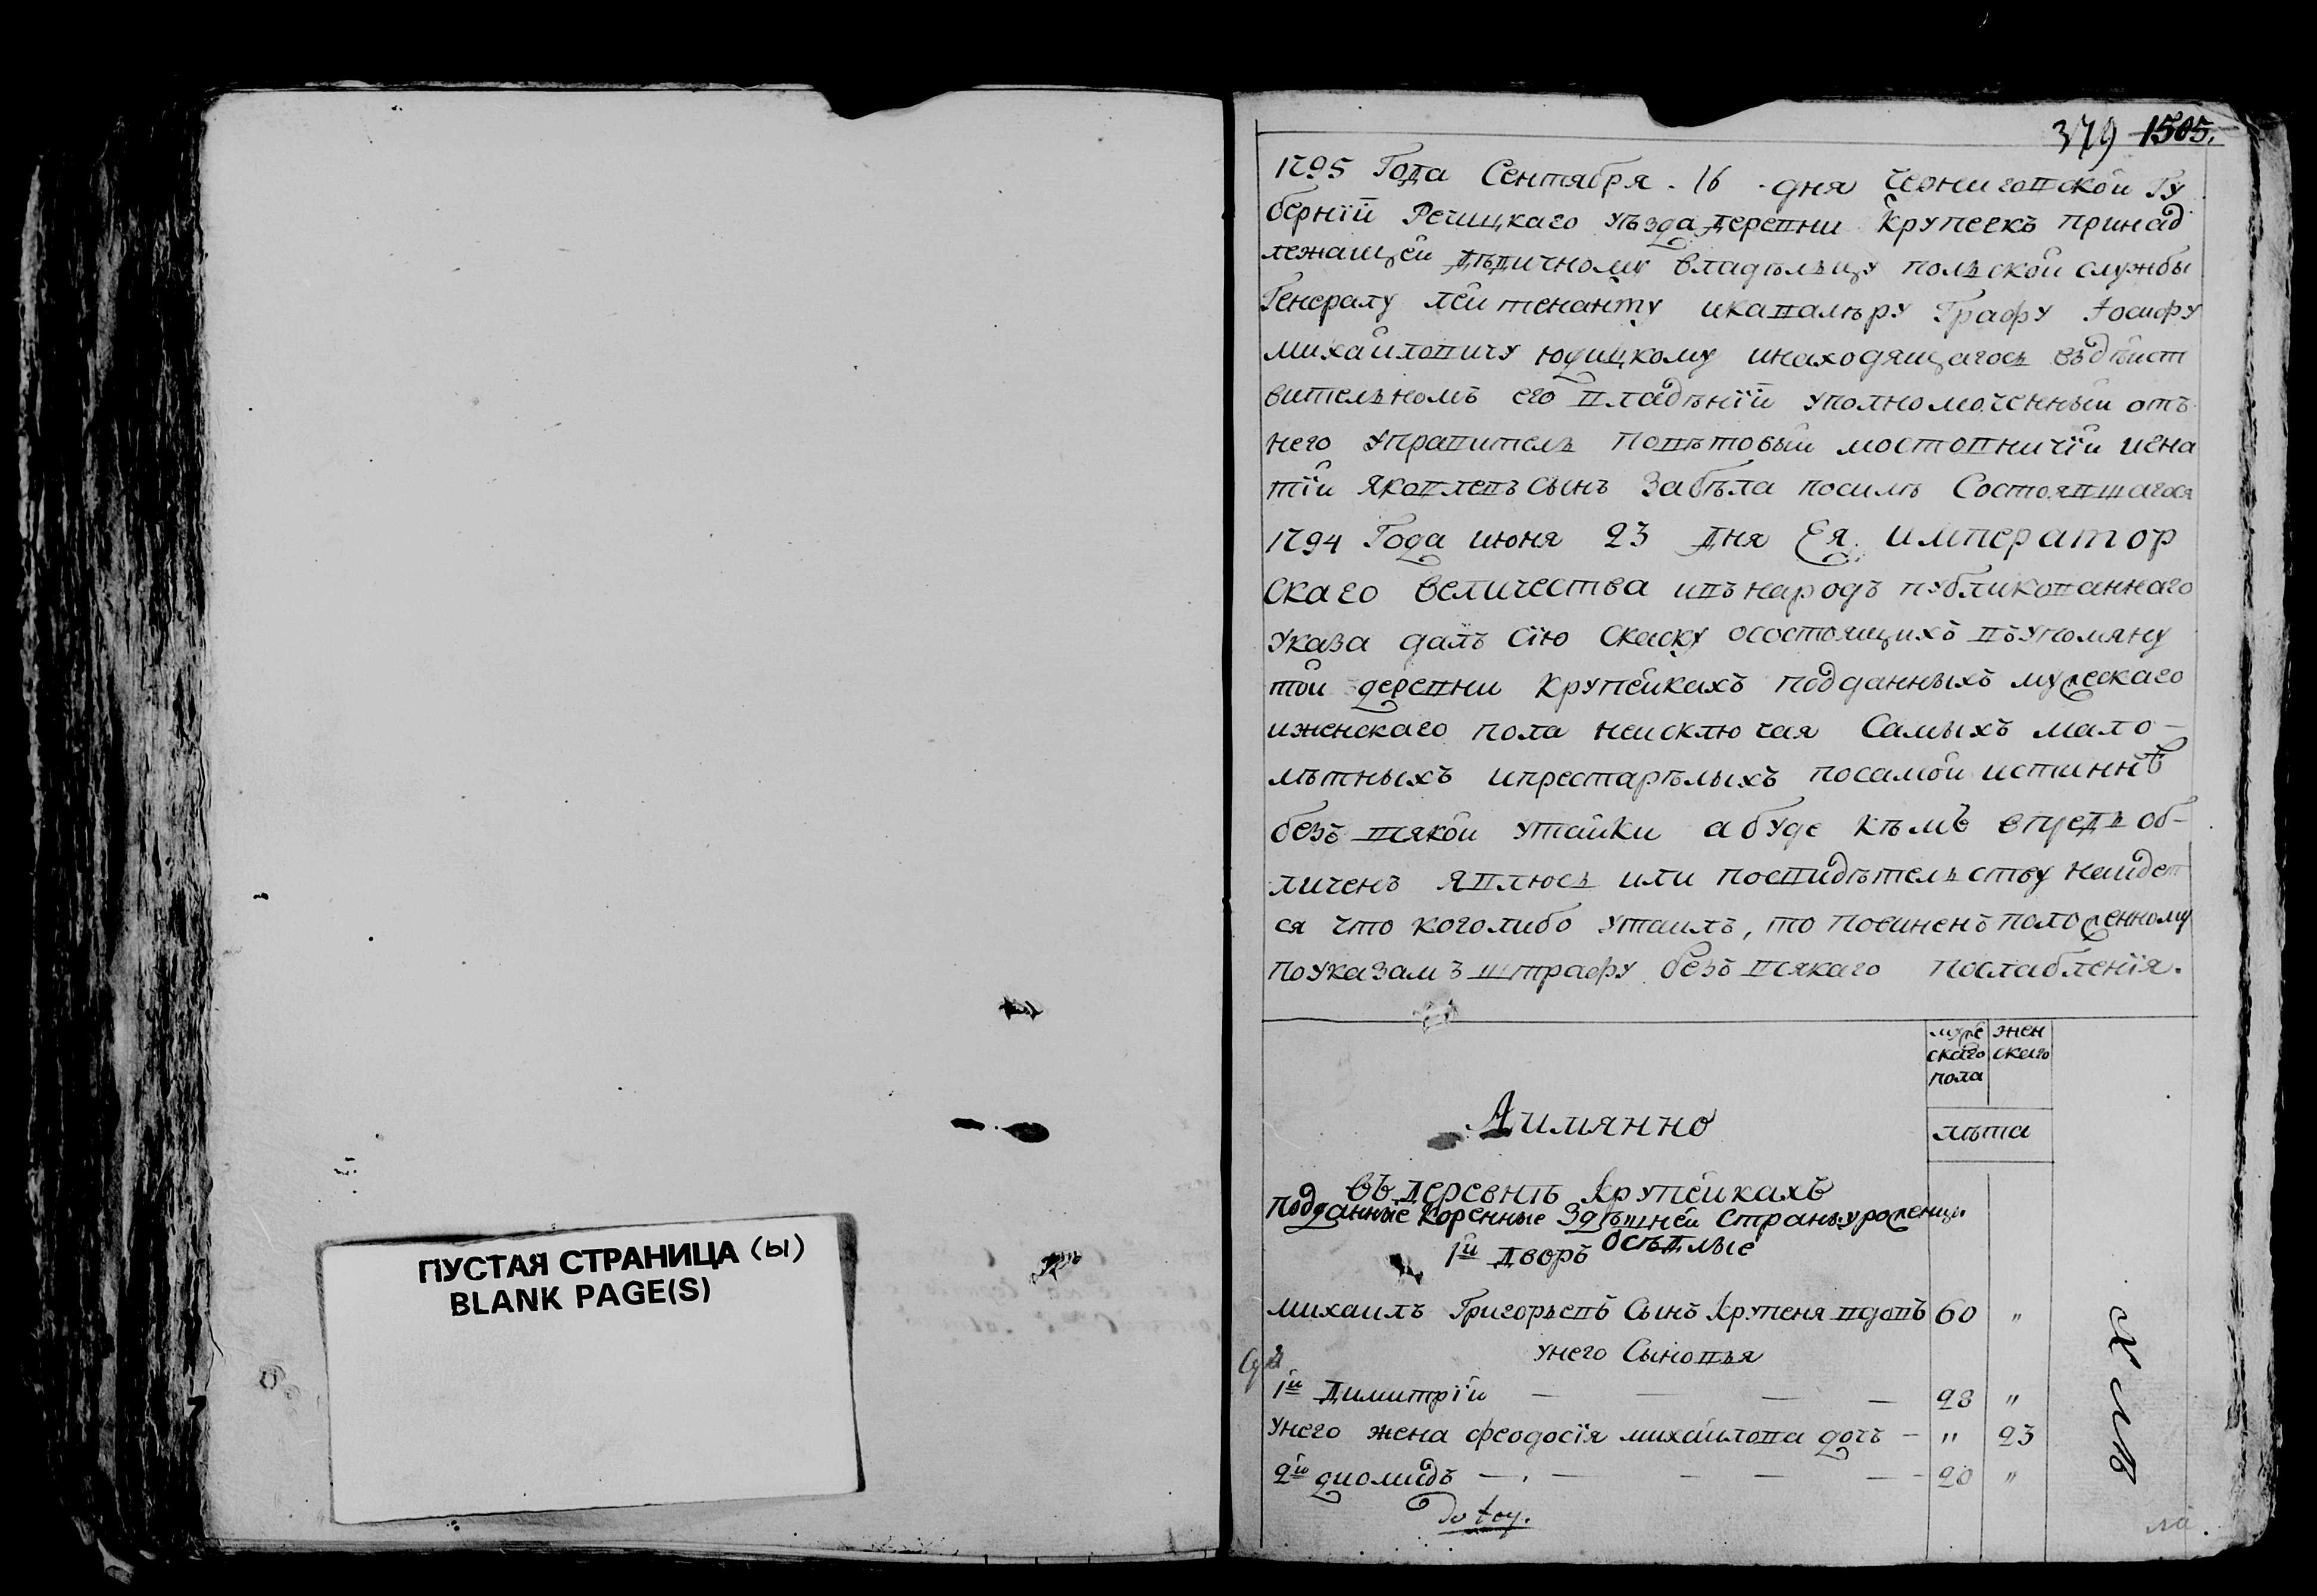 ПУСТАЯ СТРАНИЦА (ы)
BLANK PAGE(S)
379 1505.
1795 Года Сентября. 16 дня Черниговской Гу
берній Речицкаго уѣзда деревни Крупеекъ принад
лежащей дѣдичному владѣльцу польской службы
Генералу лейтенанту икавалѣру Графу Іосифу
михайловичу юдицкому инаходящагось въдѣйст
вительномъ его владѣніи уполномоченный отъ
него управитель повѣтовый мостовничій игна
тій Яковлевъ сынъ Забѣла посилѣ Состоявшагося
1794 Года июня 23 дня Ея император
скаго величества ивънародъ публикованнаго
указа далъ сію скаску осостоящихъ въупомяну
той деревни Крупейкахъ подданныхъ мужескаго
иженскаго пола неисключая Самыхъ мало-
лѣтныхъ ипрестарѣлыхъ посамой истиннѣ
безъ всякой утайки а буде кѣмъ впредь об-
личенъ явлюсь или посвидѣтельству найдет
ся что коголибо утаилъ, то повиненъ положенному
поуказамъ штрафу безъ всякаго послабленія.
муже
скаго
пола
жен
скаго
Аимянно
лѣта
въ деревнѣ Крупейкахъ
подданные коренные Здѣшней страны уроженцы
осѣдлые
1й дворъ
михаилъ Григорьевъ Сынъ Крупеня вдовъ 60 "
унего Сыновья
1й Димитрій — — — — 28 "
унего жена феодосія михайлова дочь - " 23
2й диомидъ — — — — — 20 "